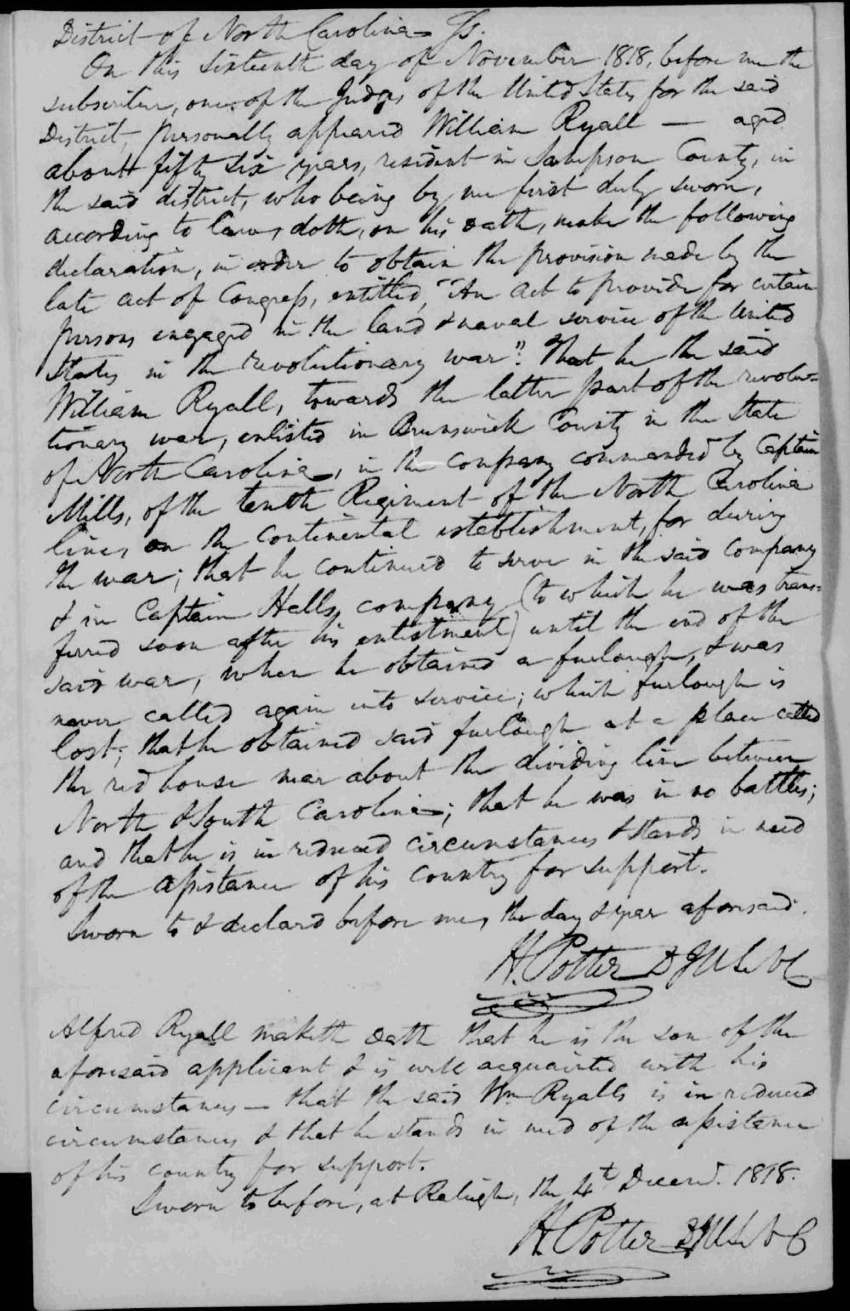 District of North Carolina Ss.
On this sixteenth day of November 1818, before me the
subscriber, one of the Judges of the United States for the said
District, personally appeared William Ryall — aged
about fifty six years, resident in Sampson County, in
the said district, who being by me first duly sworn,
according to law, doth, on his oath, make the following
declaration, in order to obtain the provision made by the
late act of Congress, entitled, "An Act to provide for certain
persons engaged in the land & naval service of the United
States in the revolutionary war": That he the said
William Ryall, towards the latter part of the revolu-
tionary war, enlisted in Brunswick County in the State
of North Carolina, in the company commanded by Captain
Mills, of the tenth Regiment of the North Carolina
lines on the Continental establishment, for during
the war; that he continued to serve in the said company
& in Captain Halls company (to which he was trans-
ferred soon after his enlistment) until the end of the
said war, when he obtained a furlough, & was
never called again into service; which furlough is
lost; that he obtained said furlough at a place called
the red house near about the dividing line between
North & South Carolina; that he was in no battles;
and that he is in reduced circumstances & stands in need
of the assistance of his country for support.
Sworn to & declared before me, the day & year aforesaid.
H. Potter
Alfred Ryall maketh oath that he is the son of the
aforesaid applicant & is well acquainted with his
circumstances — that the said Wm Ryalls is in reduced
circumstances & that he stands in need of the assistance
of his country for support.
Sworn to before, at Raleigh, the 4t Decemr. 1818.
H. Potter